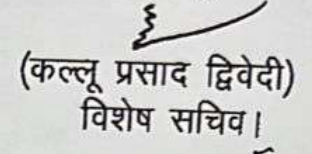 (कल्लू प्रसाद द्विवेदी)
विशेष सचिव।